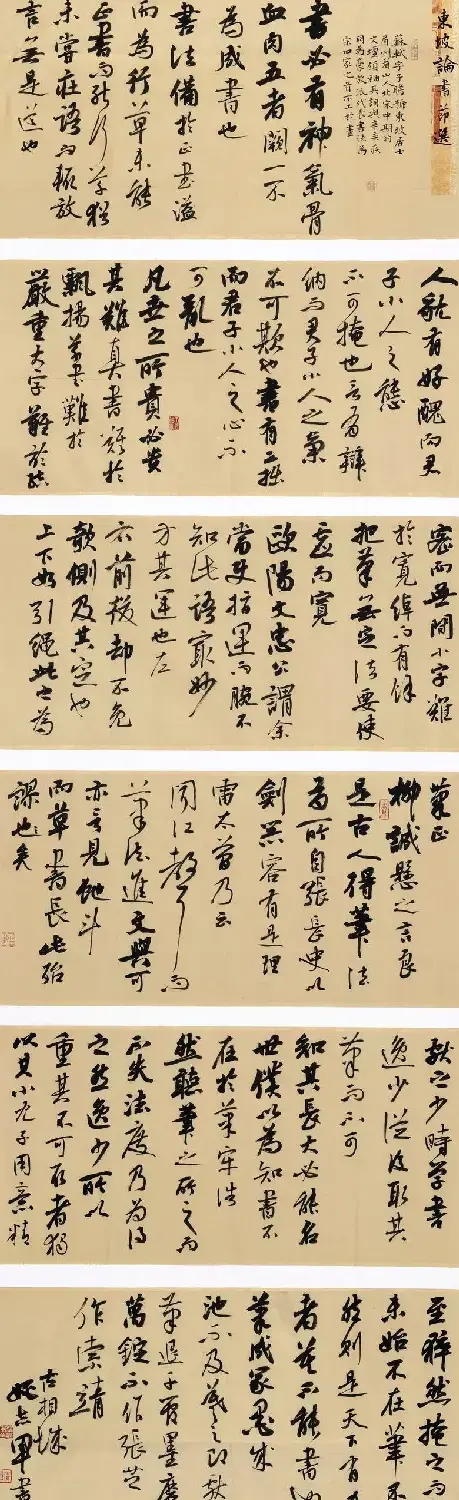 東坡論書節選
蘇軾字子瞻號東坡居士
眉州眉山人北宋中期的
文壇領袖其詞開辛棄疾
詞為豪放派代表書法為
宋四家之首
書必有神氣骨
血肉五者闕一不
為成書也
書法備於正書溢
而為行草未能
正書而能行草猶
未嘗莊語而輒放
言無是道也
人貌有好醜而君
子小人之態
不可掩也言有辯
納而君子小人之氣
不可欺也書有工拙
而君子小人之心不
可亂也
凡世之所貴必貴
其難真書難於
飄揚草書難於
嚴重大字難於結
密而無間小字難
於寬綽而有餘
把筆無定法要使
虛而寬
歐陽文忠公謂余
當使指運而腕不
知此語最妙
方其運也左
右前後却不免
欹側及其定也
上下如引繩此之為
筆正
柳誠懸之言良
是古人得筆法
有所自張長史以
劍器容有是理
雷太簡乃云
聞江聲而
筆法進文與可
亦言見蛇鬥
而草書長此殆
謬也矣
獻之少時學書
逸少從後取其
筆而不可
知其長大必能名
世僕以為知書不
在於筆牢浩
然聽筆之所之而
不失法度乃為得
之然逸少所以
重其不可取者獨
以其小兒子用意精
至猝然掩之而
未始不在筆不
然則是天下有力
者莫不能書也
筆成冢墨成
池不及羲之即獻
筆退千管墨磨
萬鋌不作張芝
作索靖
古相城
姚志軍書